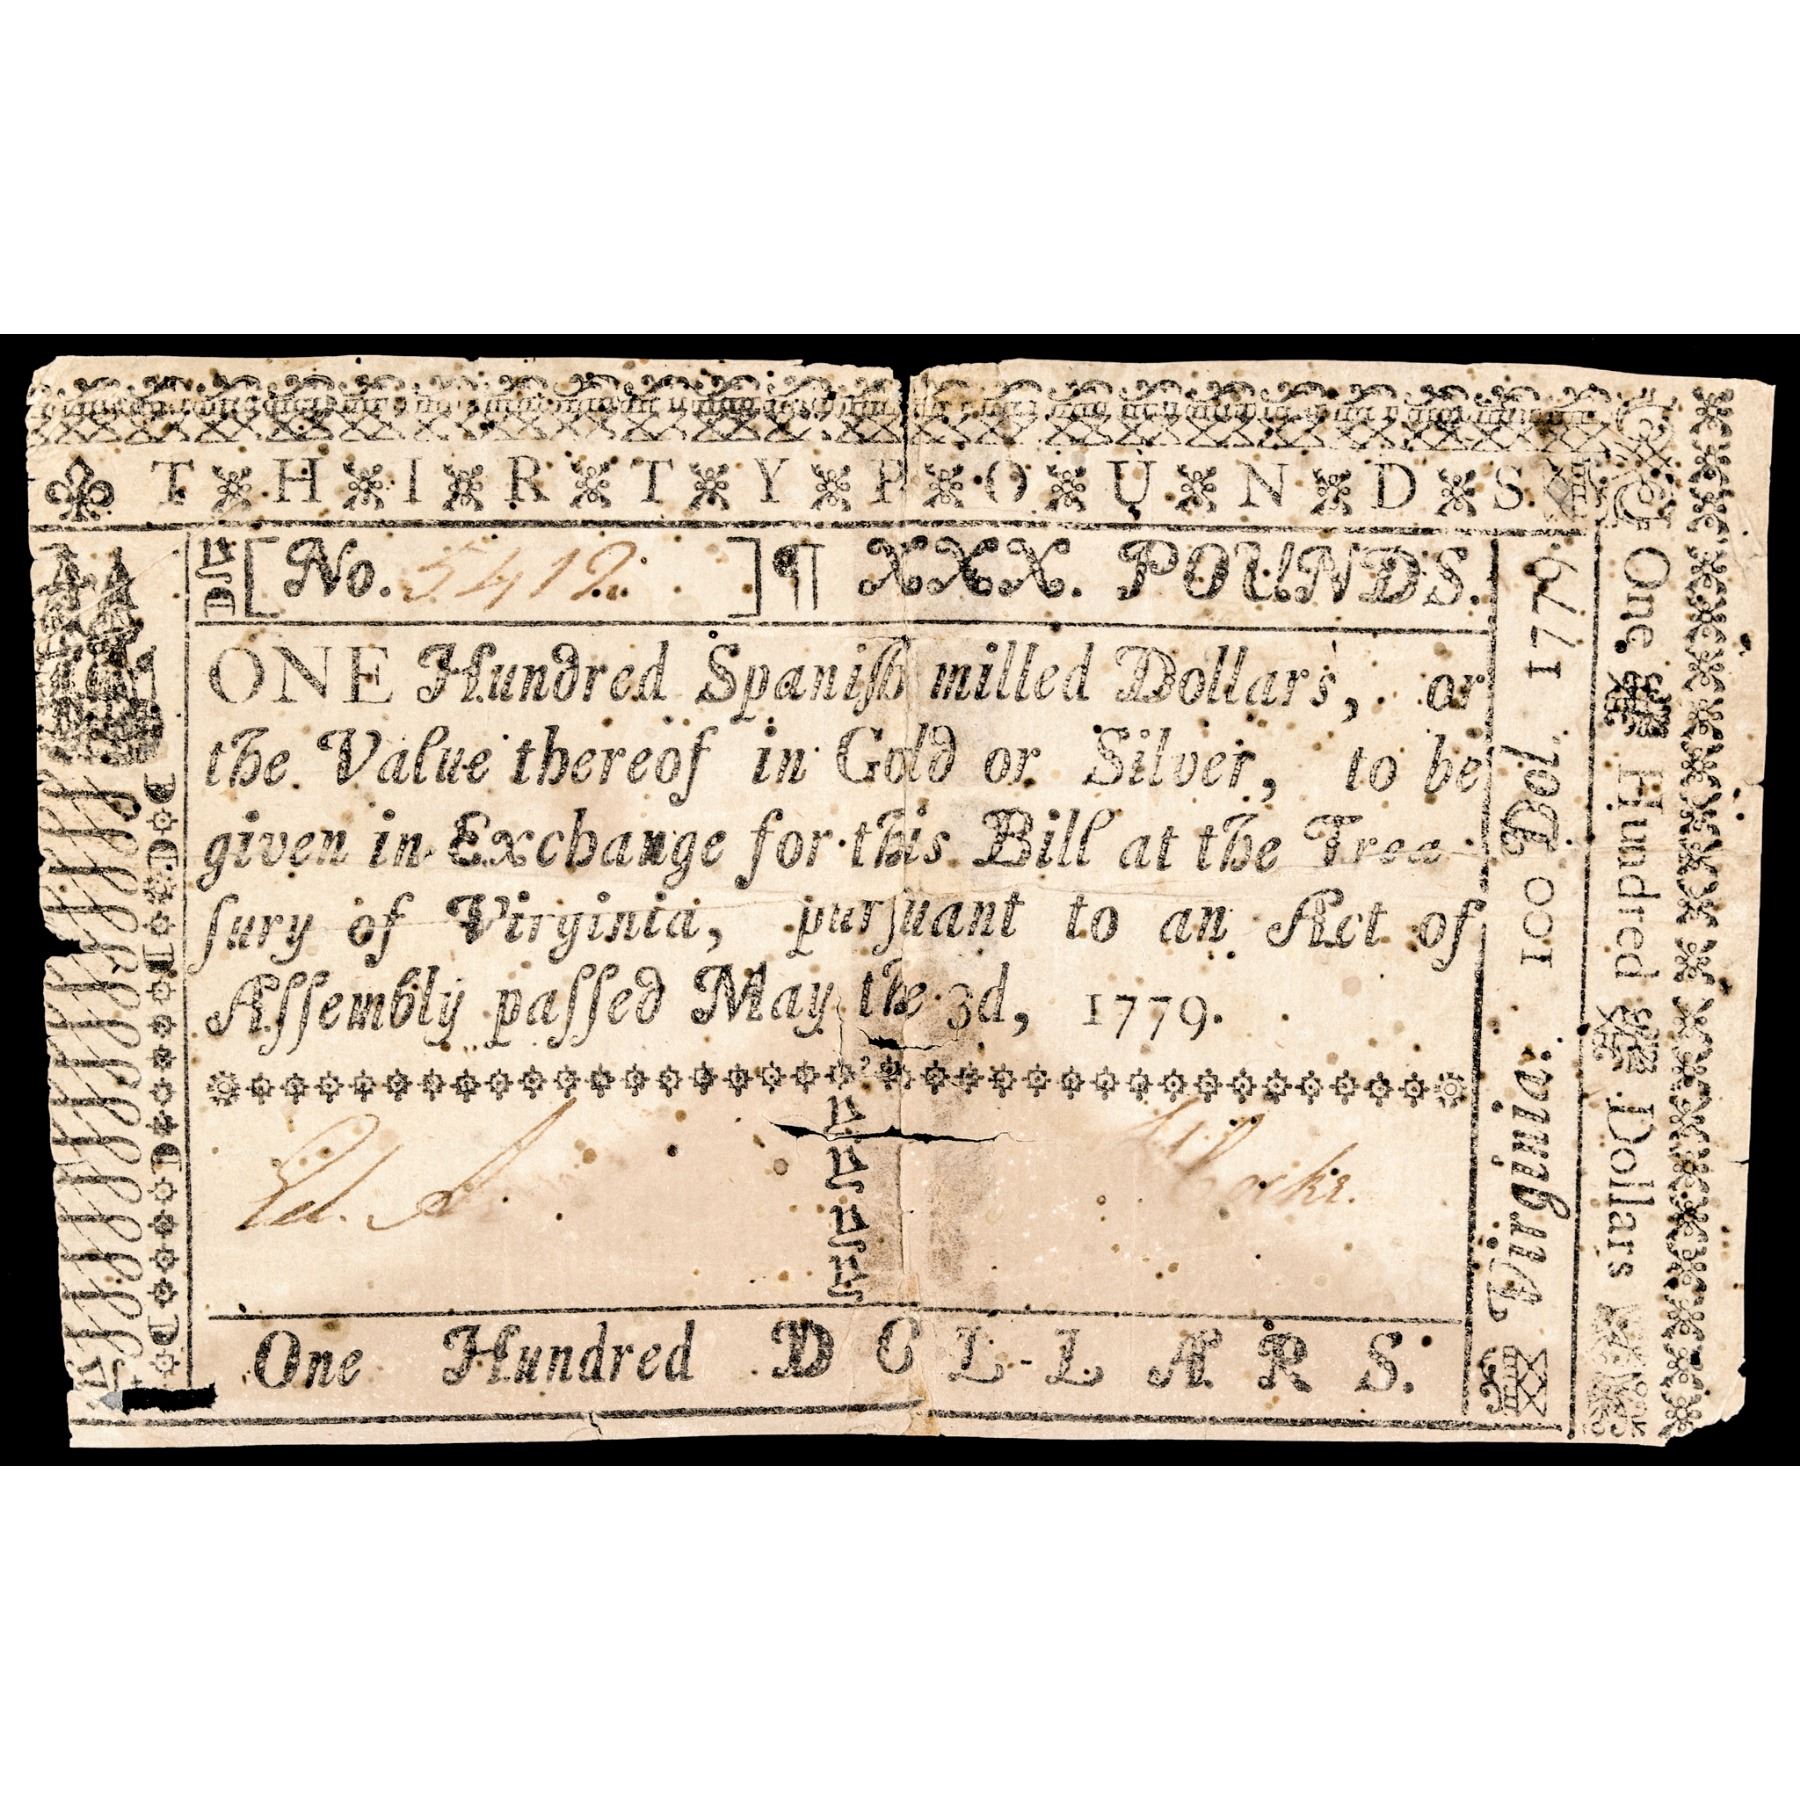 THIRTY POUNDS.
[No. 5412.] ¶ XXX. POUNDS.
ONE Hundred Spaniſh milled Dollars, or
the Value thereof in Gold or Silver, to be
given in Exchange for this Bill at the Trea-
ſury of Virginia, purſuant to an Act of
Aſſembly paſſed May the 3d, 1779.
One Hundred DOLLARS.
Virginia. 100 Dol. 1779.
One Hundred Dollars